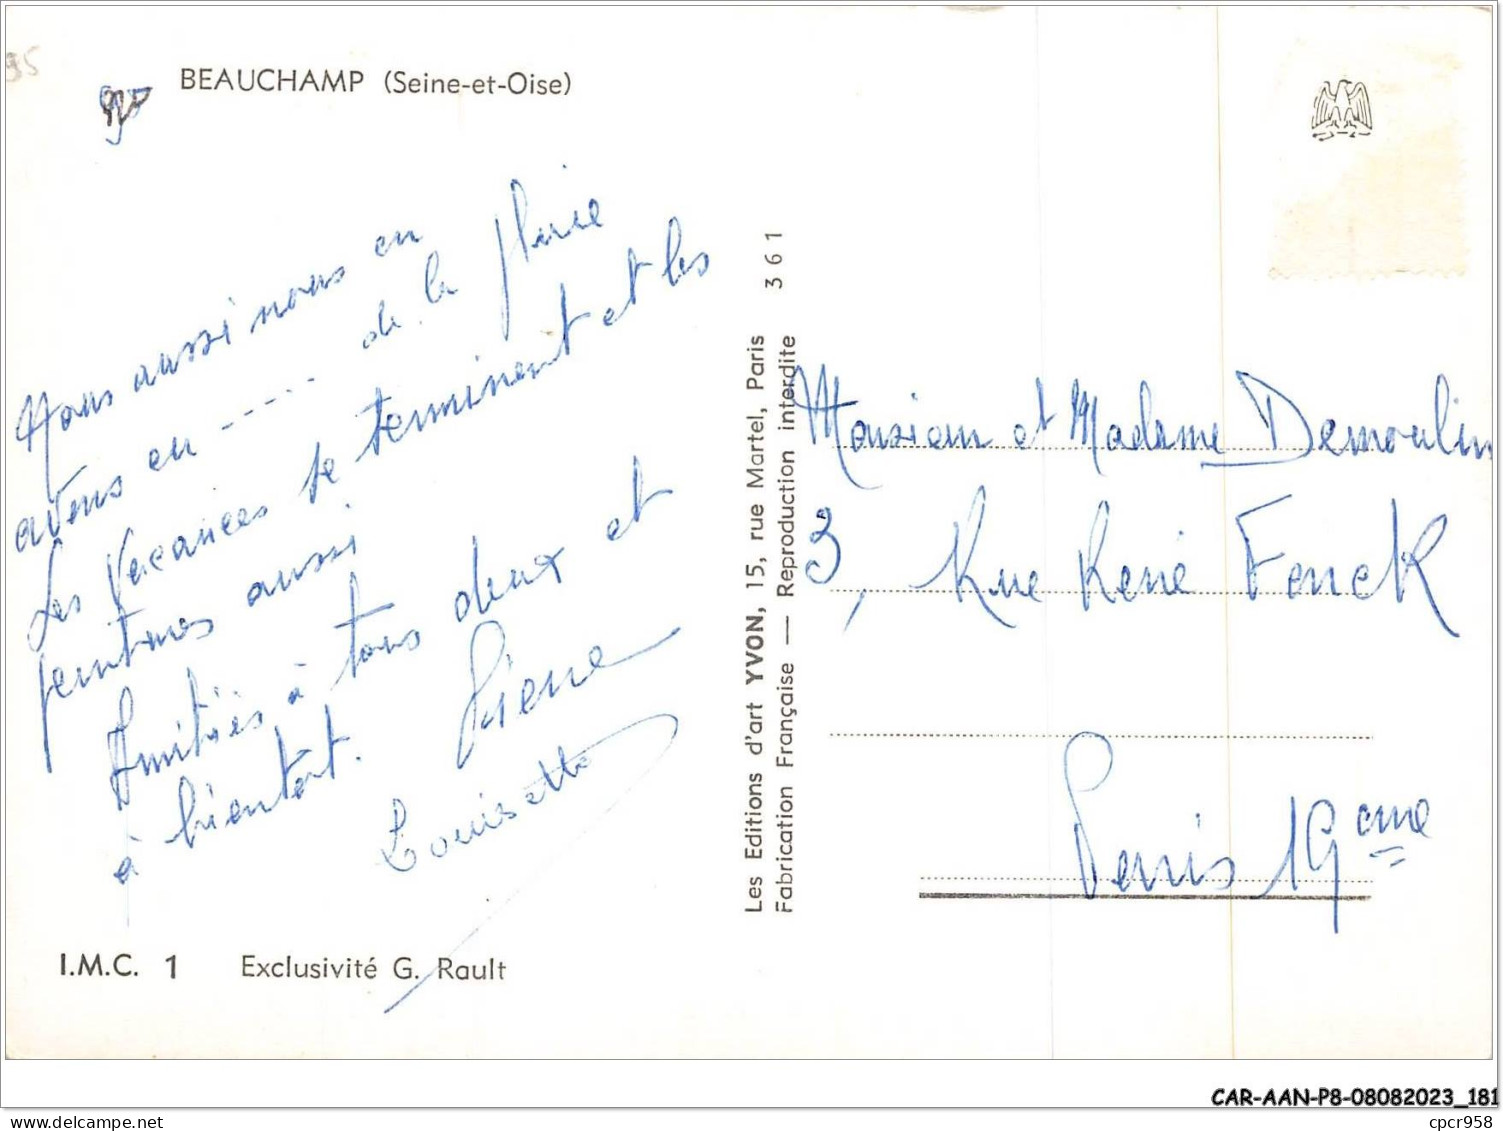 95
BEAUCHAMP (Seine-et-Oise)
Nous aussi nous en
avons eu ---- de la pluie
Les Vacances se terminent et les
peintures aussi.
Amitiés à tous deux et
à bientôt. Pierre
Louisette
I.M.C. 1 Exclusivité G. Rault
Les Editions d'art YVON, 15, rue Martel, Paris 361
Fabrication Française — Reproduction interdite
Monsieur et Madame Demoulin
3, Rue René Fonck
Paris 19eme
CAR-AAN-P8-08082023_181
cpcr958